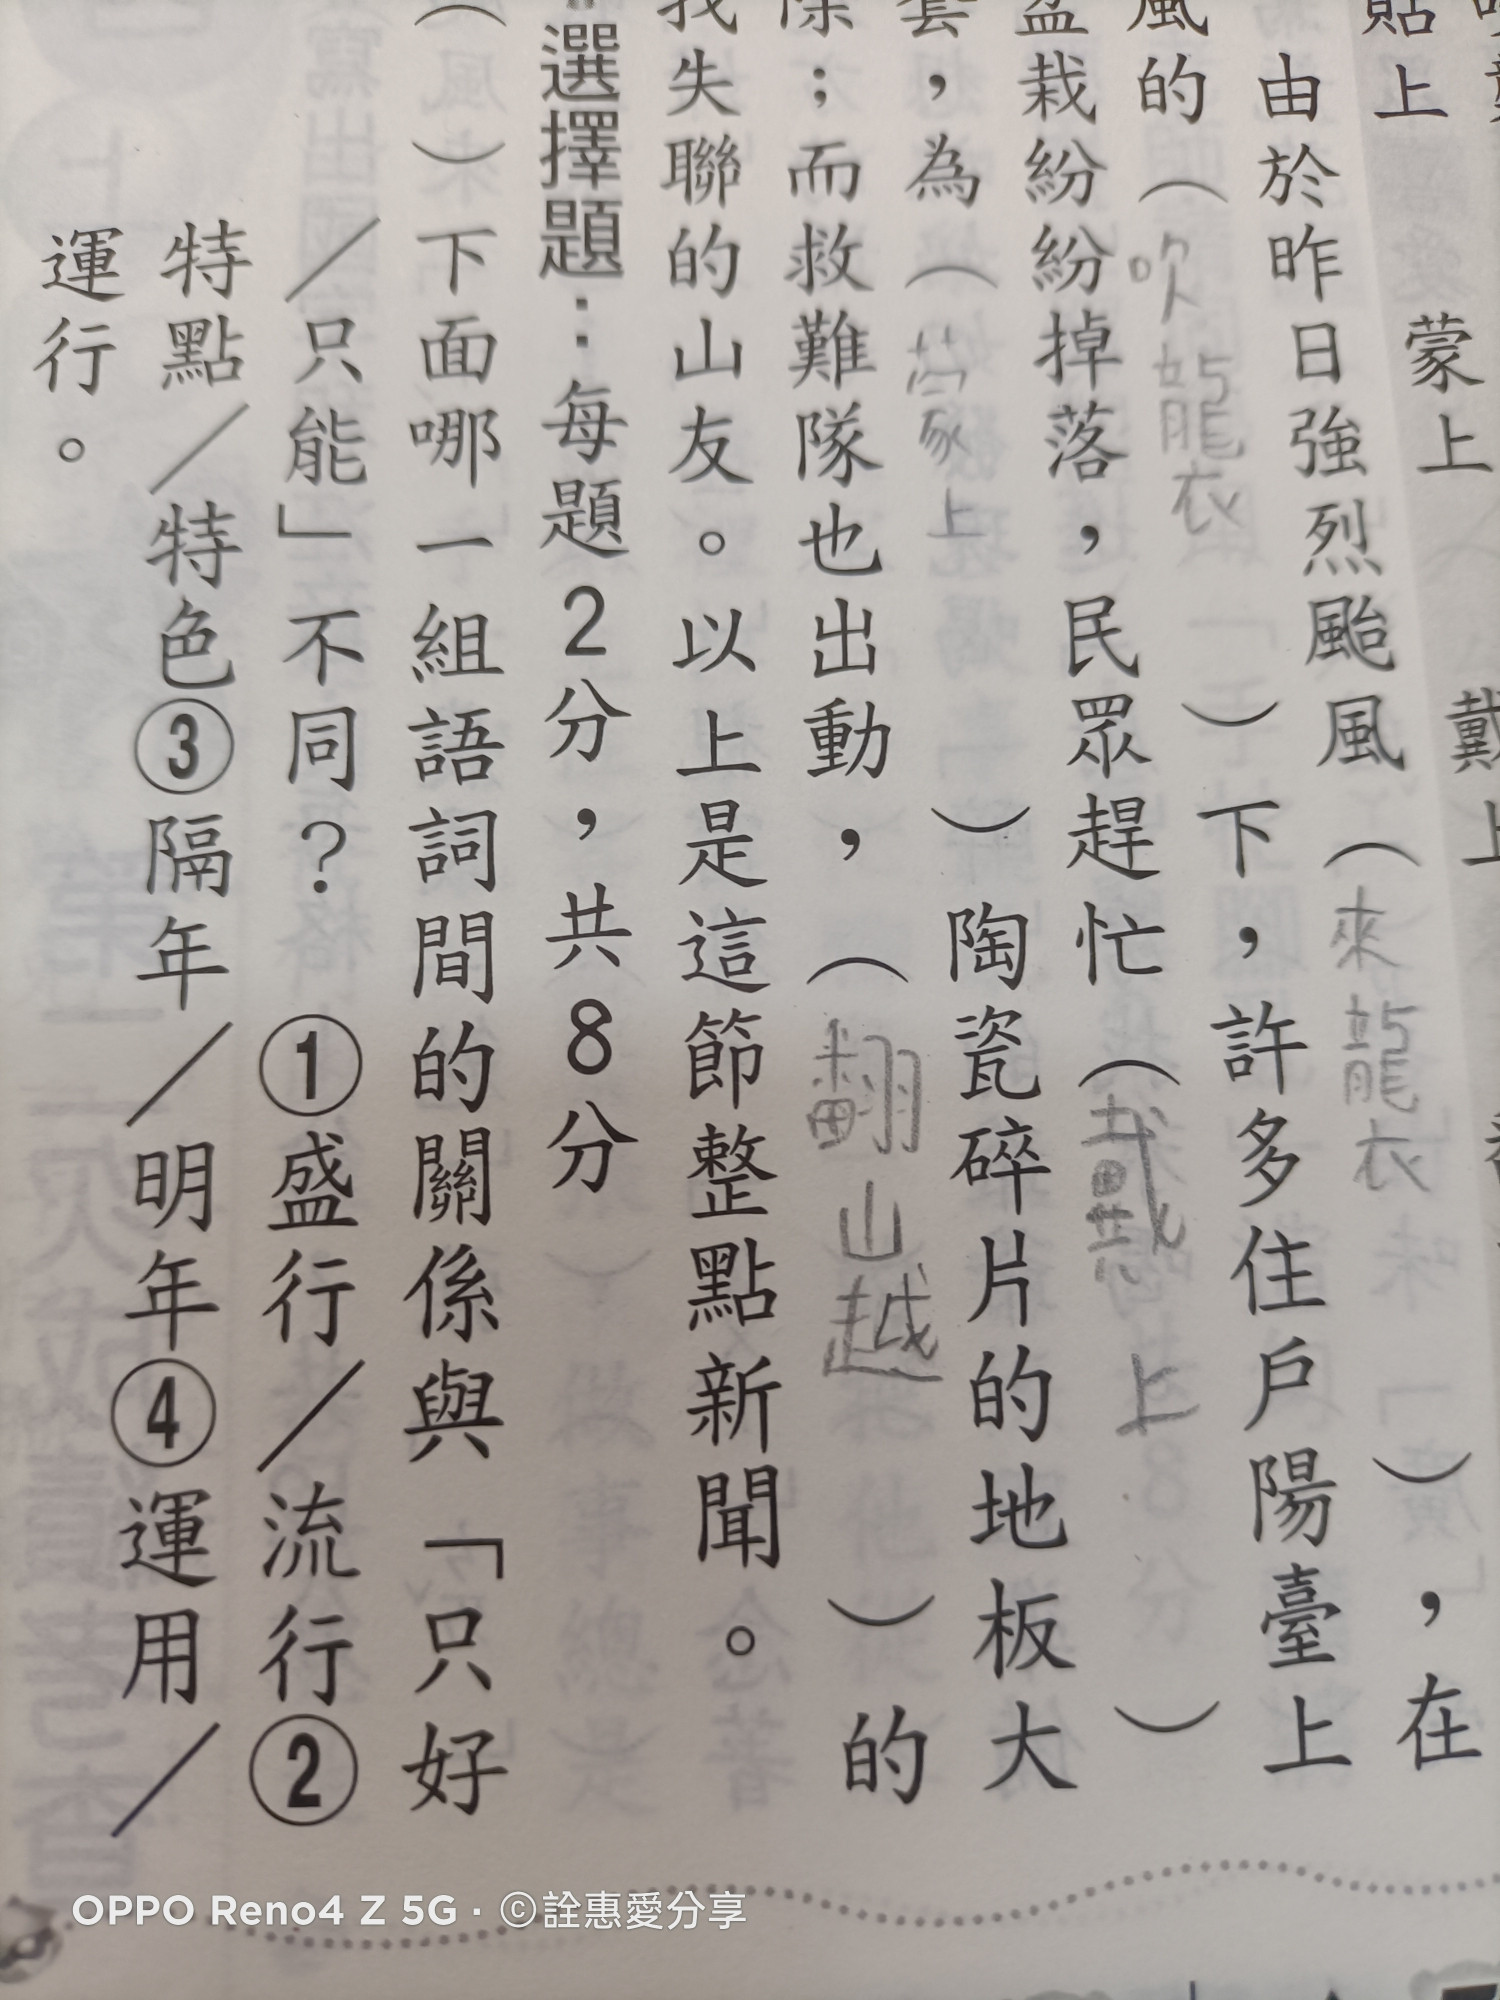 貼上
蒙上
戴上
由於昨日強烈颱風（來襲），在
風的（吹襲）下，許多住戶陽臺上
盆栽紛紛掉落，民眾趕忙（戴上）
套，為（蒙上）陶瓷碎片的地板大
除；而救難隊也出動，（翻山越）的
找失聯的山友。以上是這節整點新聞。
選擇題：每題2分，共8分
（）下面哪一組語詞間的關係與「只好
／只能」不同？①盛行／流行②
特點／特色③隔年／明年④運用／
運行。
OPPO Reno4 Z 5G · ©詮惠愛分享